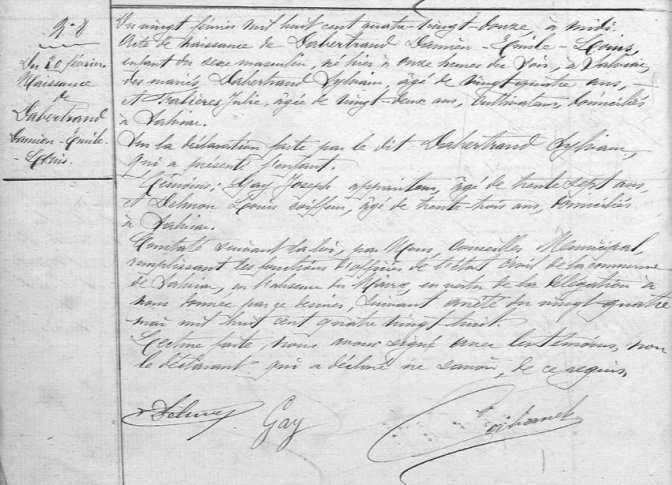 N° 8
Du 20 février
Naissance
de
Dabertrand
Damien-Emile-
-Louis.
Du vingt février mil huit cent quatre-vingt-douze, à midi.
Acte de naissance de Dabertrand Damien-Emile-Louis,
enfant du sexe masculin, né hier à onze heures du soir, à Salviac,
des mariés Dabertrand Sylvain, âgé de vingt-quatre ans,
et Julie, âgée de vingt-deux ans, cultivateurs, domiciliés
à Salviac.
Sur la déclaration faite par le dit Dabertrand Sylvain,
qui a présenté l'enfant.
Témoins: Gay Joseph appariteur, âgé de trente sept ans,
et Delmon Louis coiffeur, âgé de trente-trois ans, domiciliés
à Salviac.
Constaté suivant la loi, par Nous, Conseiller Municipal,
remplissant les fonctions d'officier de l'état civil de la commune
de Salviac, en l'absence du Maire, en vertu de la délégation à
nous donnée par ce dernier, suivant arrêté du vingt-quatre
mai mil huit cent quatre vingt huit.
Lecture faite, nous avons signé avec les témoins, non
le déclarant qui a déclaré ne savoir, de ce requis.
Gay